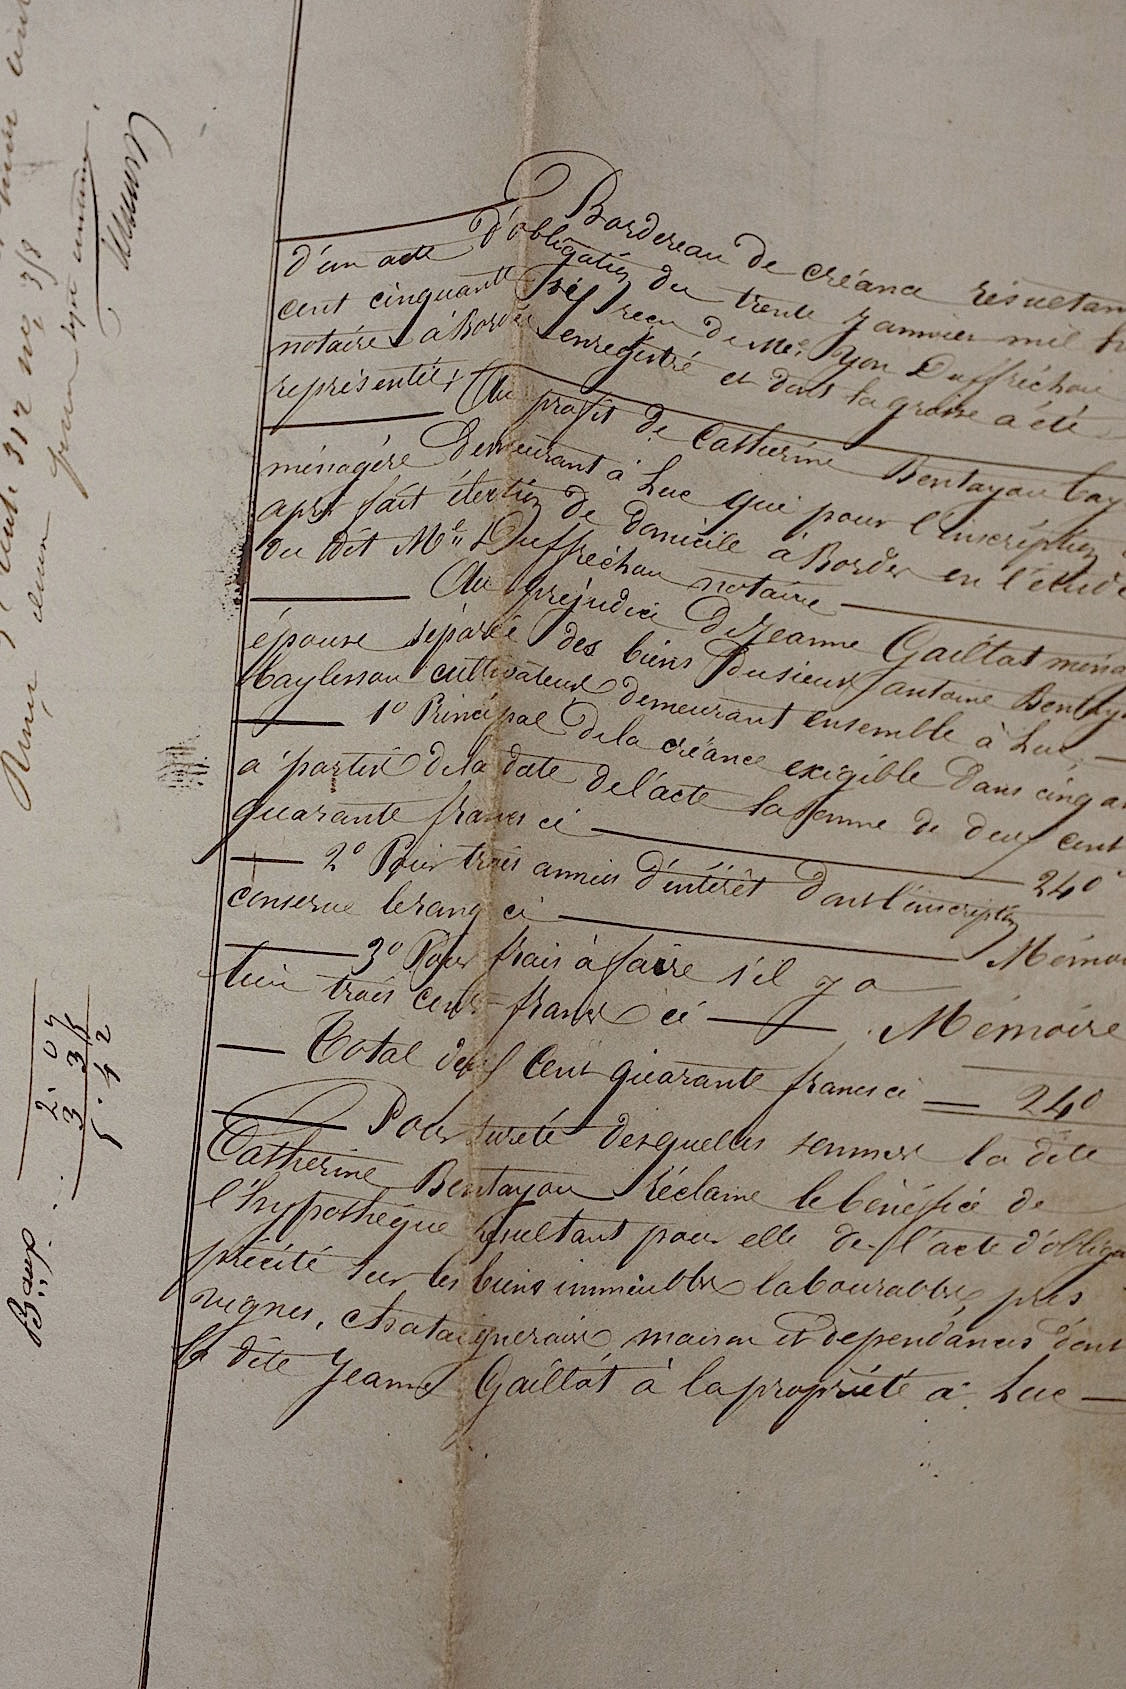 Bordereau de créance résultan
d'un acte d'obligation du trente Janvier mil h
cent cinquante six reçu de Me. Yon Duffréchou
notaire à Bordes enregistré et dont la grosse a été
représentée,
Au profit de Catherine Bentayou Cay
ménagère demeurant à Luc qui pour l'inscription
apr. fait élection de domicile à Bordes en l'étude
du dit Me. Duffréchou notaire
Au préjudice de Jeanne Gaillat ména
épouse séparée des biens du sieur antoine Bentay
Caylessou cultivateurs demeurant ensemble à Luc,
1° Principal de la créance exigible dans cinq an
à partir de la date de l'acte la somme de deux cent
quarante francs ci 240
2° Pour trois années d'intérêt dont l'inscription
conserve le rang ci Mémoi
3° Pour frais à faire s'il y a
lieu trois cents francs ci Mémoire
Total deux cent quarante francs ci 240
Pour sureté desquelles sommes la dite
Catherine Bentayou réclame le bénéfice de
l'hypothèque résultant pour elle de l'acte d'obliga
précité sur les biens immeubles labourables, prés
vignes, chataigneraies, maison et dépendances dont
la dite Jeanne Gaillat à la propriété à Luc
2. 07
3 35
5. 42